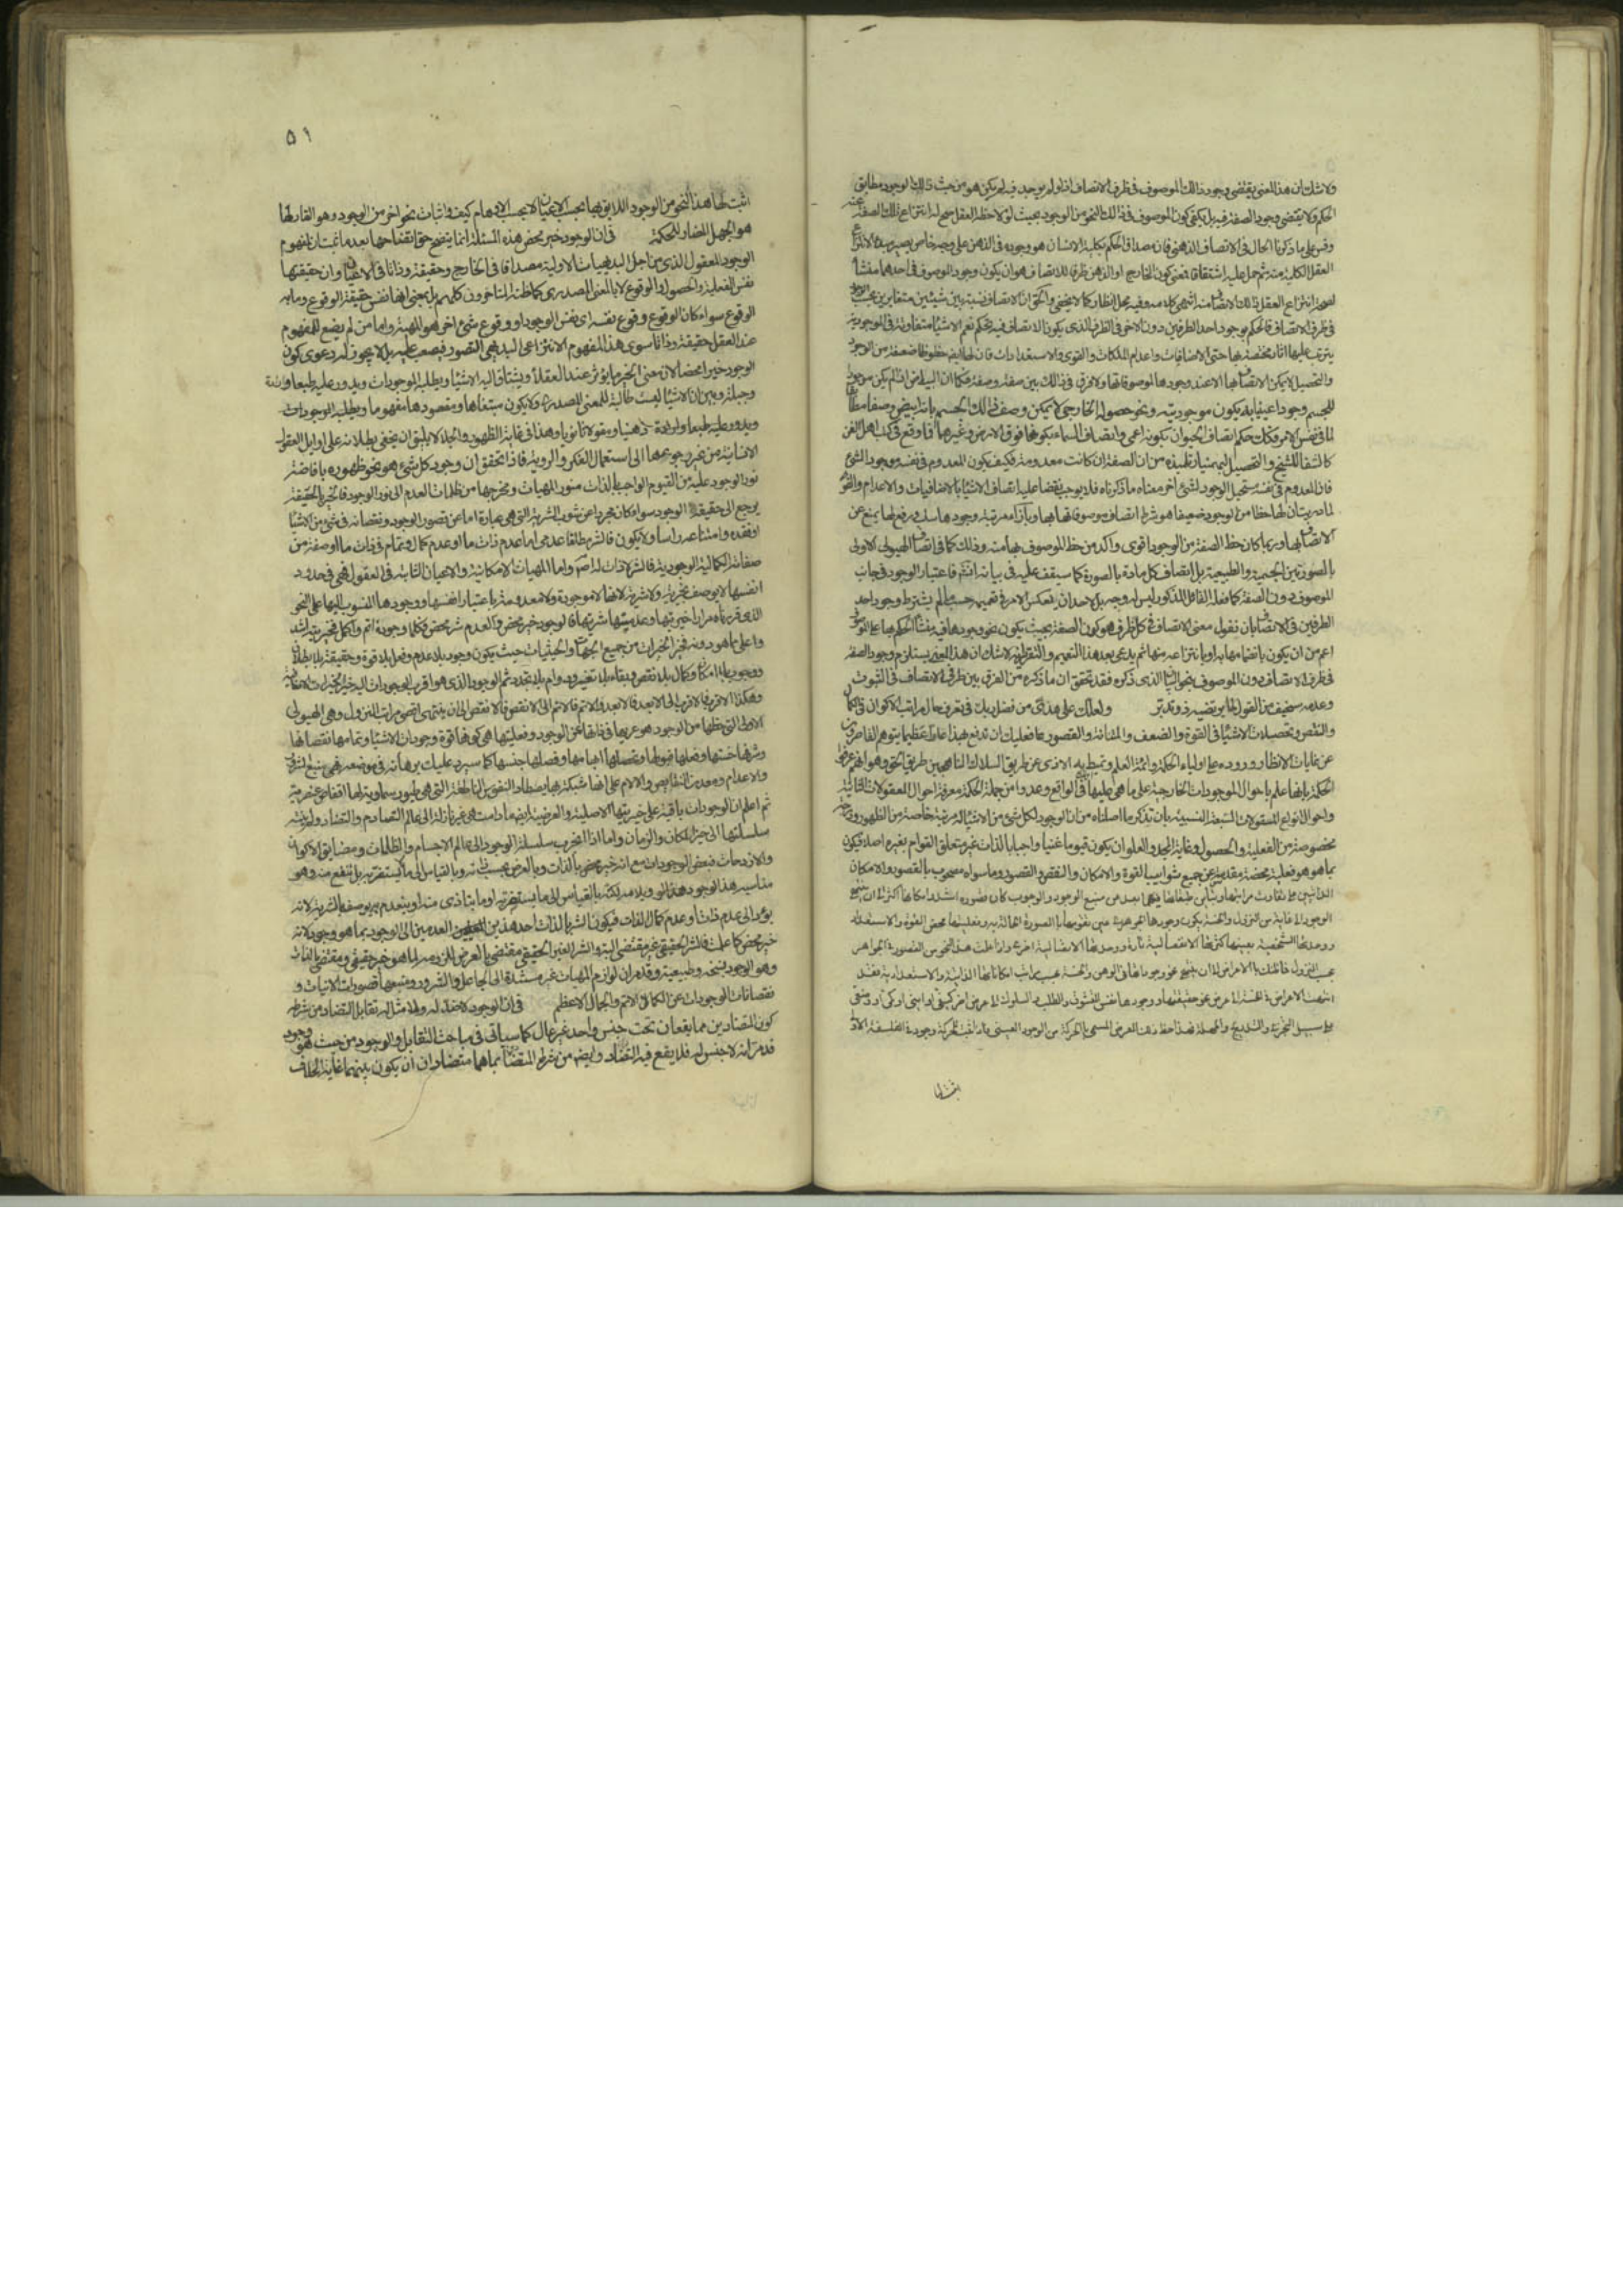 ولا شك ان هذا المعنى يقتضى وجود ذلك الموصوف فى ظرف الاتصاف اذ لو لم يوجد فيه لم يكن هو من حيث ذلك الوجود مطابق
الحكم ولا يقتضى وجود الصفة فيه بل يكفى كون الموصوف فى ذلك النحو من الوجود بحيث لو لاحظه العقل صح له انتزاع تلك الصفة عنه
وقس على ما ذكرنا الحال فى الاتصاف الذهنى فان مصداق الحكم بكلية الانسان هو وجوده فى الذهن على وجه خاص يصير مبدءا لانتزاع
العقل الكلية منه ثم حمل عليه اشتقاقا فمعنى كون الخارج او الذهن ظرفا للاتصاف هو ان يكون وجود الموصوف فى احدهما منشأ
لصحة انتزاع العقل ذلك الاتصاف منه انتهى كلامه وفيه محل انظار كما لا يخفى والحق ان الاتصاف نسبة بين شيئين متغايرين بحسب الوجود
فى ظرف الاتصاف فالحكم بوجود احد الطرفين دون الاخر فى الظرف الذى يكون الاتصاف فيه تحكم نعم الاشياء متفاوتة فى الموجودية
يترتب عليها اثار مختصة بها حتى الاضافيات واعدام الملكات والقوى والاستعدادات فان لها ايضا حظوظا ضعيفة من الوجود
والتحصيل لا يمكن الاتصاف بها الا عند وجودها لموصوفاتها ولا فرق فى ذلك بين صفة وصفة فكما ان البياض اذا لم يكن موجودا
للجسم وجودا عينيا به يكون موجوديته ونحو حصوله الخارجى لا يمكن وصف ذلك الجسم بانه ابيض وصفا مطابقا
لما فى نفس الامر فكذلك حكم اتصاف الحيوان بكونه اعمى واتصاف السماء بكونها فوق الارض وغيرهما فما وقع فى كتب اهل الفن
كالشفا للشيخ والتحصيل لبهمنيار تلميذه من ان الصفة ان كانت معدومة فكيف يكون المعدوم فى نفسه موجودا لشئ
فان المعدوم فى نفسه مستحيل الوجود لشئ اخر معناه ما ذكرناه فلا يوجب نقضا عليه اتصاف الاشياء بالاضافيات والاعدام والقوى
لما دريت ان لها حظا من الوجود ضعيفا هو شرط اتصاف موصوفاتها بها وبازاء مرتبة وجودها سلب ورفع لها يمنع عن
الاتصاف بها وربما كان حظ الصفة من الوجود اقوى واكد من حظ الموصوف بها منه وذلك كما فى اتصاف الهيولى الاولى
بالصورتين الجسمية والطبيعية بل اتصاف كل مادة بالصورة كما سيقف عليه فى بيانه انشاء فاعتبار الوجود فى جانب
الموصوف دون الصفة كما فعله القائل المذكور ليس له وجه بل لاحد ان يعكس الامر فى تعميمه حسبما لم يشترط وجود احد
الطرفين فى الاتصاف بان نقول معنى الاتصاف فى كل ظرف هو كون الصفة بحيث يكون نحو وجودها فيه منشأ الحكم بها على الموصوف
اعم من ان يكون بانضمامها به او بانتزاعه منها ثم يدعى بعد هذا التعميم والتقرير انه لا شك ان هذا المعنى يستلزم وجود الصفة
فى ظرف الاتصاف دون الموصوف بنحو البيان الذى ذكره فقد تحقق ان ما ذكره من الفرق بين طرفى الاتصاف فى الثبوت
وعدمه سخيف من القول لجاير بنقيضه فذر وتدبر ولعلك على هدايتى من فضل ربك فى تعرف حال مراتب الاكوان فى الكمال
والنقص وتحصلات الاشياء فى القوة والضعف والمتانة والقصور عما فعليك ان تدفع بهذا عارا عظيما يتوهم القاصرون
عن غايات الانظار وروده على اولياء الحكمة وائمة العلم وتميط به الاذى عن طريق السلاك الناهجين طريق الحق وهو انهم عرفوا
الحكمة بانها علم باحوال الموجودات الخارجية على ما هى عليها فى الواقع وعدوا من جملة الحكمة معرفة احوال المعقولات الثانية
واحوال انواع المقولات السبعة النسبية بان تذكر ما اصلناه من ان الوجود لكل شئ من الاشياء له مرتبة خاصة من الظهور ودرجة
مخصوصة من الفعلية والحصول وغاية المجد والعلو ان يكون قيوما غنيا واجبا بالذات غير متعلق القوام بغيره اصلا فيكون
بما هو هو فعلية محضة مقدسة عن جميع شوايب القوة والامكان والنقص والقصور وما سواه مصحوب بالقصور والامكان
الذاتيين على تفاوت مراتبها وتباين طبقاتها فكلما بعد من منبع الوجود والوجوب كان قصوره اشد وامكانه اكثر الى ان ينتهى
الوجود الى غاية من النزول والخسة يكون وجودها الجوهرية عين تقومها بالصورة الحالة به وفعليتها محض القوة والاستعداد
ووحدتها الشخصية بعينها كثرتها الانفصالية تارة ووحدتها الاتصالية اخرى واذا علمت هذا النحو من القصور فى الجواهر
بحسب النزول فما ظنك بالاعراض الى ان ينتهى نحو وجوداتها فى الوهن والخسة بحسب مراتب امكاناتها الذاتية والاستعدادية فقد
انتهت الاعراض فى الخسة الى عرض نحو حقيقتها ووجودها نفس التشوق والطلب والسلوك الى عرض اخر كيفى او اينى او كمى او وضعى
على سبيل التجزى والتدريج والمهلة فهذا حظ هذا العرض المسمى بالحركة من الوجود العينى فاذا ثبت للحركة وجود فى الفلسفة الاولى
اثبت لها
٥١
اثبت لها هذا النحو من الوجود اللايق بها بحسب الاعيان لا بحسب الاوهام كيف واثبات نحو اخر من الوجود وهو القار لها
هو الجهل المضاد للحكمة فى ان الوجود خير محض هذه المسئلة انما يتضح حق اتضاحها بعد ما ثبت ان لمفهوم
الوجود المعقول الذى من اجلى البديهيات الاولية مصداقا فى الخارج وحقيقة وذاتا فى الاعيان وان حقيقتها
نفس الفعلية والحصول والوقوع لا بالمعنى المصدرى كما ظنه المتاخرون كلهم بل بمعنى انها نفس حقيقة الوقوع وما به
الوقوع سواء كان الوقوع وقوع نفسه اى نفس الوجود او وقوع شئ اخر هو المهية واما من لم يضع للمفهوم
عند العقل حقيقة وذاتا سوى هذا المفهوم الانتزاعى البديهى التصور فيصعب عليه بل لا يجوز له دعوى كون
الوجود خيرا محضا لان معنى الخير ما يؤثر عند العقلاء ويشتاق اليه الاشياء ويطلبه الموجودات ويدور عليه طبعا وارادة
وجبلة وبين ان الاشياء ليست طالبة للمعنى المصدرى ولا يكون مبتغاها ومقصودها مفهوما ويطلبه الموجودات
ويدور عليه طبعا وارادة ذهنيا ومعقولا ثانويا وهذا فى غاية الظهور والجلاء لا يليق ان يخفى بطلانه على اوايل العقول
الانسانية من غير رجوعها الى استعمال الفكر والروية فاذا تحقق ان وجود كل شئ هو نحو ظهوره بافاضة
نور الوجود عليه من القيوم الواجب بالذات منور المهيات ومخرجها من ظلمات العدم الى نور الوجود فالخير بالحقيقة
يرجع الى حقيقة الوجود سواء كان مجردا عن شوب الشرية التى هى عبارة اما عن قصور الوجود ونقصانه فى شئ من الاشياء
او فقده وامتناعه راسا ولا يكون فالشر مطلقا عدمى اما عدم ذات ما او عدم كمال وتمام فى ذات ما او صفة من
صفاته الكمالية الوجودية فالشر لا ذات له اصلا واما المهيات الامكانية والاعيان الثابتة فى العقول فهى فى حدود
انفسها لا يوصف بخيرية ولا شرية لانها لا موجودة ولا معدومة باعتبار انفسها ووجودها المنسوب اليها على النحو
الذى قررناه مرارا خيريتها وعدميتها شريتها فالوجود خير محض والعدم شر محض فكل ما وجوده اتم واكمل فخيريته اشد
واعلى مما هو دونه فخير الخيرات من جميع الجهات والحيثيات حيث يكون وجود بلا عدم وفعل بلا قوة وحقيقة بلا بطلان
ووجوب بلا امكان وكمال بلا نقص وبقاء بلا تغير ودوام بلا تجدد ثم الوجود الذى هو اقرب الوجودات اليه خير الخيرات الاضافية
وهكذا الاقرب فالاقرب الى الابعد فالابعد والاتم فالاتم الى الانقص فالانقص الى ان ينتهى اقصى مراتب النزول وهى الهيولى
الاولى التى حظها من الوجود هو عريها فى ذاتها عن الوجود وفعليتها هى كونها قوة وجودات الاشياء وتمامها نقصانها
وشرفها خستها وفعلها قبولها وتحصلها ابهامها وفصلها جنسها كما سيرد عليك برهانه فى موضعه فهى منبع الشرور
والاعدام ومعدن النقايص والالام على انها شبكة بها يصطاد النفوس الناطقة التى هى طيور سماوية لها اقفاص عنصرية
ثم اعلم ان الوجودات باقية على خيريتها الاصلية والعرضية ايضا ما دامت هى غير نازلة الى عالم التصادم والتضاد ولم ينته
سلسلتها الى حيز المكان والزمان واما اذا انجرت سلسلة الوجود الى عالم الاجسام والظلمات ومضايق الاكوان
والازدحامات فبعض الوجودات مع انه خير محض بالذات وبالعرض بحسب ذاته وبالقياس الى ما لا يستضر به بل ينتفع منه وهو
مناسبه هذا الوجود ويلايمه لكنه بالقياس الى ما يستضر به او ما يتاذى منه او ينعدم به يوصف بالشرية لانه
يؤدى الى عدم ذات او عدم كمال لذات فيكون الشر بالذات احد هذين العدمين لا الوجود بما هو وجود لانه
خير محض كما علمت فالشر الحقيقى غير مقتضى اليه والشر الغير الحقيقى مقتضى بالعرض للزومه لما هو خير حقيقى ومقتضى بالذات
وهو الوجود بسنخه وطبيعته وقد مر ان لوازم المهيات غير مستندة الى الجاعل والشرور ومنبعها قصورات الانيات و
نقصانات الوجودات عن الكمال الاتم والجمال الاعظم فى ان الوجود لا ضد له ولا مثل له تقابل التضاد من شرطه
كون المتضادين مما يقعان تحت جنس واحد غير عال كما سياتى فى مباحث التقابل والوجود من حيث هو وجود
قد مر انه لا جنس له فلا يقع فيه التضاد وايضا من شرط المتضادين بما هما متضادان ان يكون بينهما غاية الخلاف